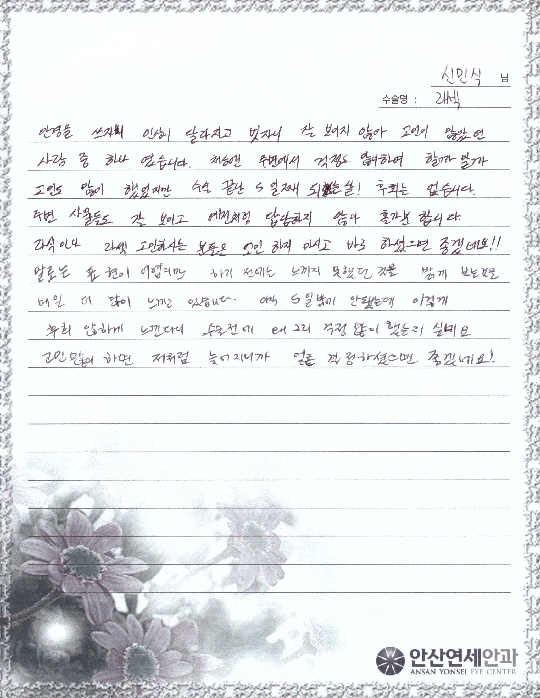 신민식 님
수술명 : 라섹
안경을 쓰자니 인상이 달라지고 벗자니 잘 보이지 않아 고민이 많았던
사람 중 하나 였습니다. 저또한 주변에서 걱정도 많이하여 할까 말까
고민도 많이 했었지만 수술 끝난 5일째 되는 날! 후회는 없습니다.
주변 사물들도 잘 보이고 예전처럼 답답하지 않아 홀가분 합니다
라식이나 라섹 고민하시는 분들은 고민 하지 마시고 바로 하셨으면 좋겠네요!!
말로는 표현이 어렵지만 하기 전에는 느끼지 못했던 것을 밝게 보는것을
매일 더 많이 느끼고 있습니다. 아직 5일밖에 안됐는데 이렇게
후회 않하게 느낀다니 수술전에 왜 그리 걱정 많이 했는지 싶네요
고민 많이 하면 저처럼 늦어지니까 얼른 결정하셨으면 좋겠네요!
안산연세안과
ANSAN YONSEI EYE CENTER